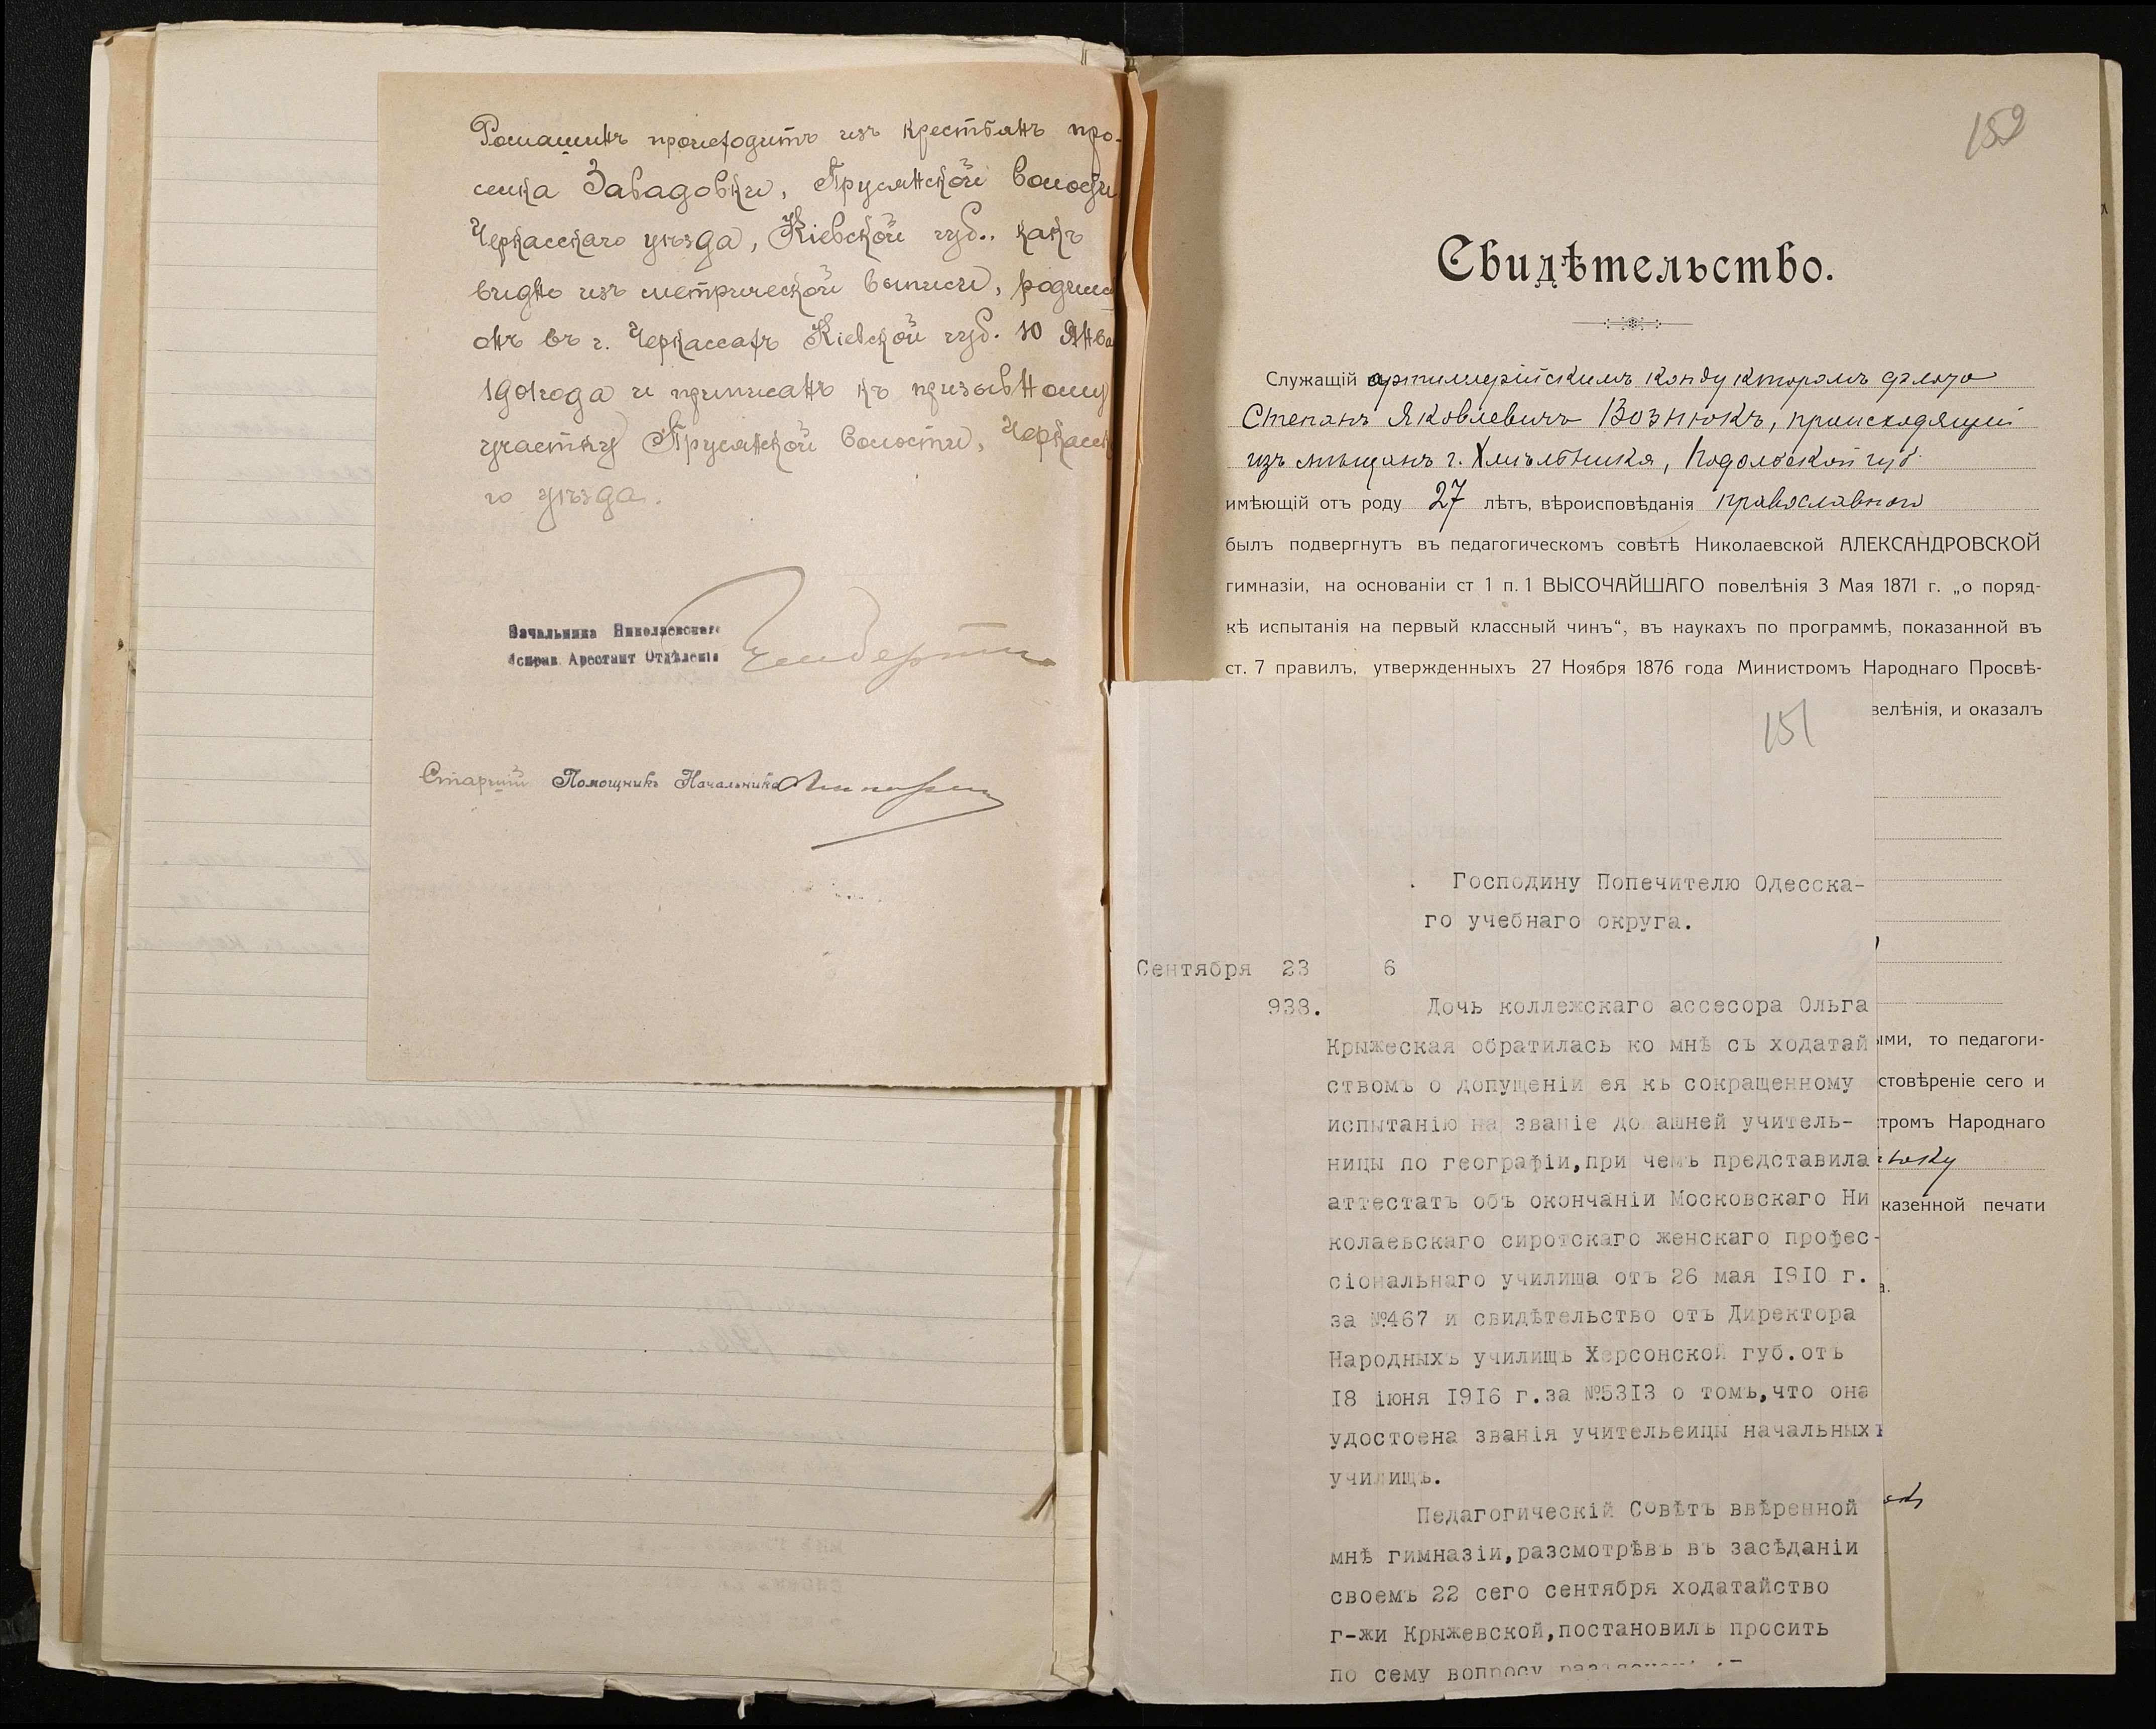 Ромашинъ происходитъ изъ крестьянъ про-
селка Завадовки, Прусянской волости
Черкасскаго уѣзда, Кіевской губ., какъ
видно изъ метрической выписи, родился
онъ въ г. Черкассахъ Кіевской губ. 10 Янва
1901 года и приписанъ къ призывному
участку Прусянской волости, Черкасск
го уѣзда.
Начальника Николаевскаго
Исправ. Арестант Отдѣленія
Старшій Помощникъ Начальника
152
Свидѣтельство.
Служащій артиллерійскимъ кондукторомъ флота
Степанъ Яковлевичъ Вознюкъ, происходящій
изъ мѣщанъ г. Хмѣльника, Подольской губ.
имѣющій отъ роду 27 лѣтъ, вѣроисповѣданія православнаго
былъ подвергнутъ въ педагогическомъ совѣтѣ Николаевской АЛЕКСАНДРОВСКОЙ
гимназіи, на основаніи ст 1 п. 1 ВЫСОЧАЙШАГО повелѣнія 3 Мая 1871 г. „о поряд-
кѣ испытанія на первый классный чинъ“, въ наукахъ по программѣ, показанной въ
ст. 7 правилъ, утвержденныхъ 27 Ноября 1876 года Министромъ Народнаго Просвѣ-
велѣнія, и оказалъ
ыми, то педагоги-
стовѣреніе сего и
тромъ Народнаго
нюку
казенной печати
а.
151
Господину Попечителю Одесска-
го учебнаго округа.
Сентября 23 6
938.
Дочь коллежскаго ассесора Ольга
Крыжеская обратилась ко мнѣ съ ходатай
ствомъ о допущеніи ея къ сокращенному
испытанію на званіе до ашней учитель-
ницы по географіи,при чемъ представила
аттестатъ объ окончаніи Московскаго Ни
колаевскаго сиротскаго женскаго профес-
сіональнаго училища отъ 26 мая I9I0 г.
за №467 и свидѣтельство отъ Директора
Народныхъ училищъ Херсонской губ.отъ
I8 іюня I9I6 г.за №53I3 о томъ,что она
удостоена званія учительеицы начальныхъ
училищъ.
Педагогическій Совѣтъ ввѣренной
мнѣ гимназіи,разсмотрѣвъ въ засѣданіи
своемъ 22 сего сентября ходатайство
г-жи Крыжевской,постановилъ просить
по сему вопросу